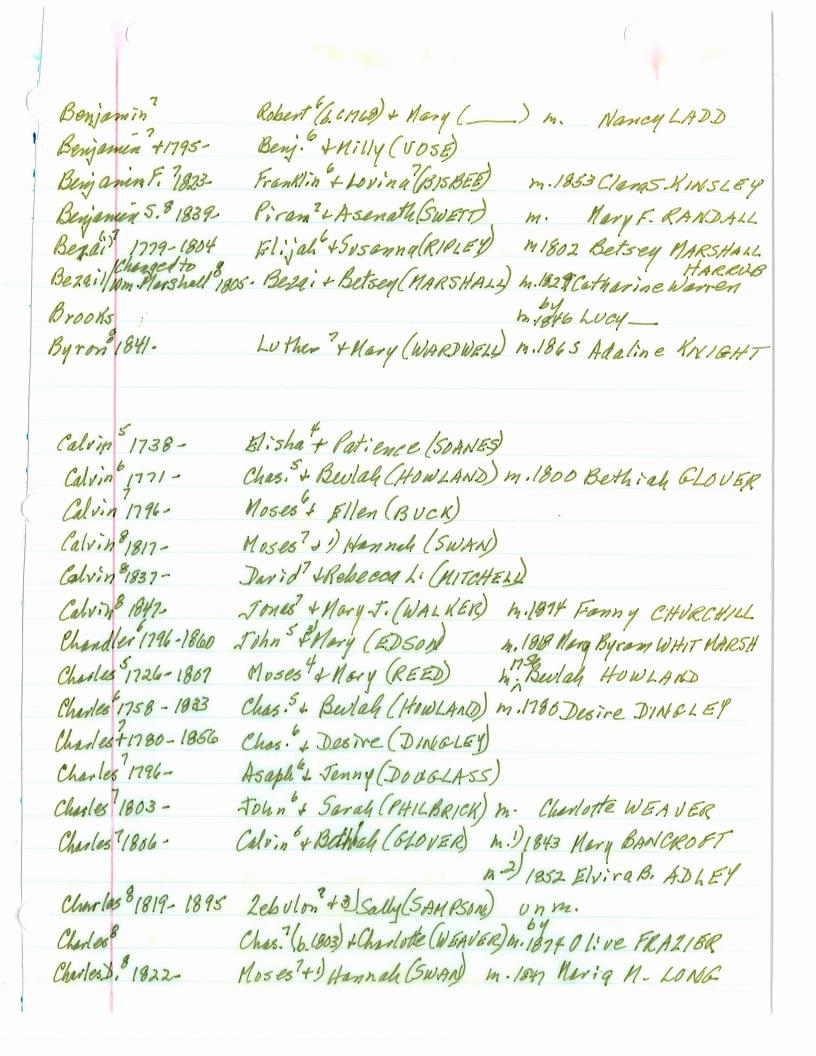 Benjamin⁷ Robert⁶ (b.c1768) + Mary (____) m. Nancy LADD
Benjamin⁷ +1795- Benj.⁶ + Milly (VOSE)
Benjamin F.⁷ 1823- Franklin⁶ + Lovina⁷ (BISBEE) m.1853 Clara S. KINSLEY
Benjamin S.⁸ 1839- Piram⁷ + Asenath (SWETT) m. Mary F. RANDALL
Bezai⁷ 1779-1804 Elijah⁶ + Susanna (RIPLEY) m 1802 Betsey MARSHALL
changed to HARRUB
Bezai/Wm. Marshall⁸ 1805- Bezai + Betsey (MARSHALL) m.1829 Catharine Warren
Brooks m. by 1846 LUCY ___
Byron⁸ 1841- Luther⁷ + Mary (WARDWELL) m.1865 Adaline KNIGHT
Calvin⁵ 1738- Elisha⁴ + Patience (SOANES)
Calvin⁶ 1771- Chas.⁵ + Beulah (HOWLAND) m.1800 Bethiah GLOVER
Calvin⁷ 1796- Moses⁶ + Ellen (BUCK)
Calvin⁸ 1817- Moses⁷ + 1) Hannah (SWAN)
Calvin⁸ 1837- David⁷ + Rebecca L. (MITCHELL)
Calvin⁸ 1847- Jonas⁷ + Mary J. (WALKER) m.1874 Fanny CHURCHILL
Chandler⁶ 1796-1860 John⁵ + Mary (EDSON) m. 1818 Mary Byram WHITMARSH
Charles⁵ 1726-1807 Moses⁴ + Mary (REED) m. 1756 Beulah HOWLAND
Charles⁶ 1758-1833 Chas.⁵ + Beulah (HOWLAND) m.1780 Desire DINGLEY
Charles⁷ +1780-1856 Chas.⁶ + Desire (DINGLEY)
Charles⁷ 1796- Asaph⁶ + Jenny (DOUGLASS)
Charles⁷ 1803- John⁶ + Sarah (PHILBRICK) m. Charlotte WEAVER
Charles⁷ 1806- Calvin⁶ + Bethiah (GLOVER) m. 1) 1843 Mary BANCROFT
m 2) 1852 Elvira B. ADLEY
Charles⁸ 1819-1895 Zebulon⁷ + 3) Sally (SAMPSON) unm.
Charles⁸ Chas.⁷ (b.1803) + Charlotte (WEAVER) m. by 1874 Olive FRAZIER
Charles D.⁸ 1822- Moses⁷ + 1) Hannah (SWAN) m. 1847 Maria M. LONG